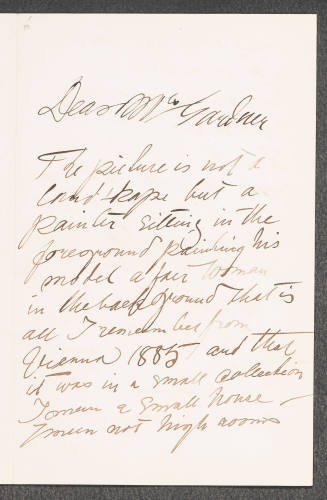 Dear Mrs Gardner
The picture is not a
land'skape but a
painter sitting in the
foreground painting his
model a fair woman
in the background that is
all I remember from
Vienna 1885 and that
it was in a small collection
I mean a small house –
I mean not high rooms